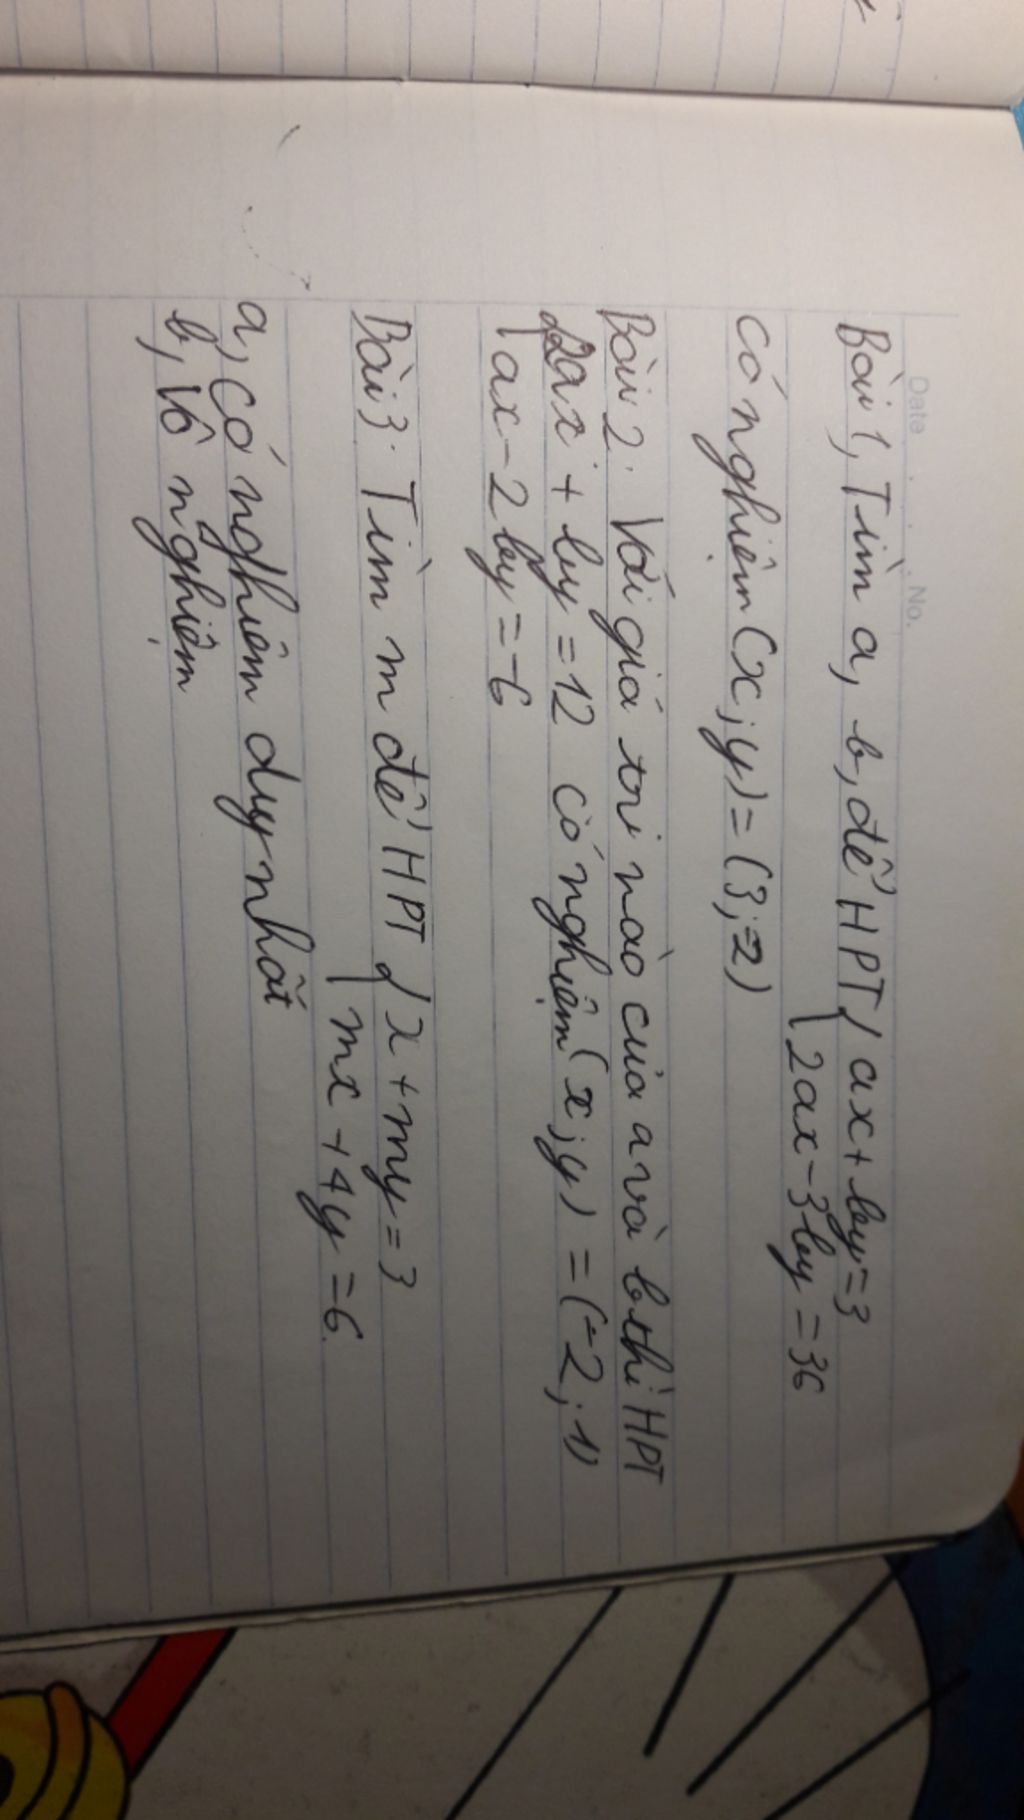 Date . . . No.
Bài 1, Tìm a, b, để HPT { ax + by = 3
2ax - 3by = 36
có nghiệm (x; y) = (3; -2)
Bài 2: Với giá trị nào của a và b thì HPT
{ 2ax + by = 12 có nghiệm (x; y) = (-2; 1)
ax - 2by = -6
Bài 3: Tìm m để HPT { x + my = 3
mx + 4y = 6
a, có nghiệm duy nhất
b, Vô nghiệm